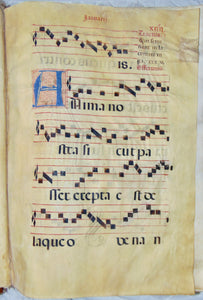 Januarii
is.
Anima no
stra si cut pa
sser erepta e st de
laqueo ve nan